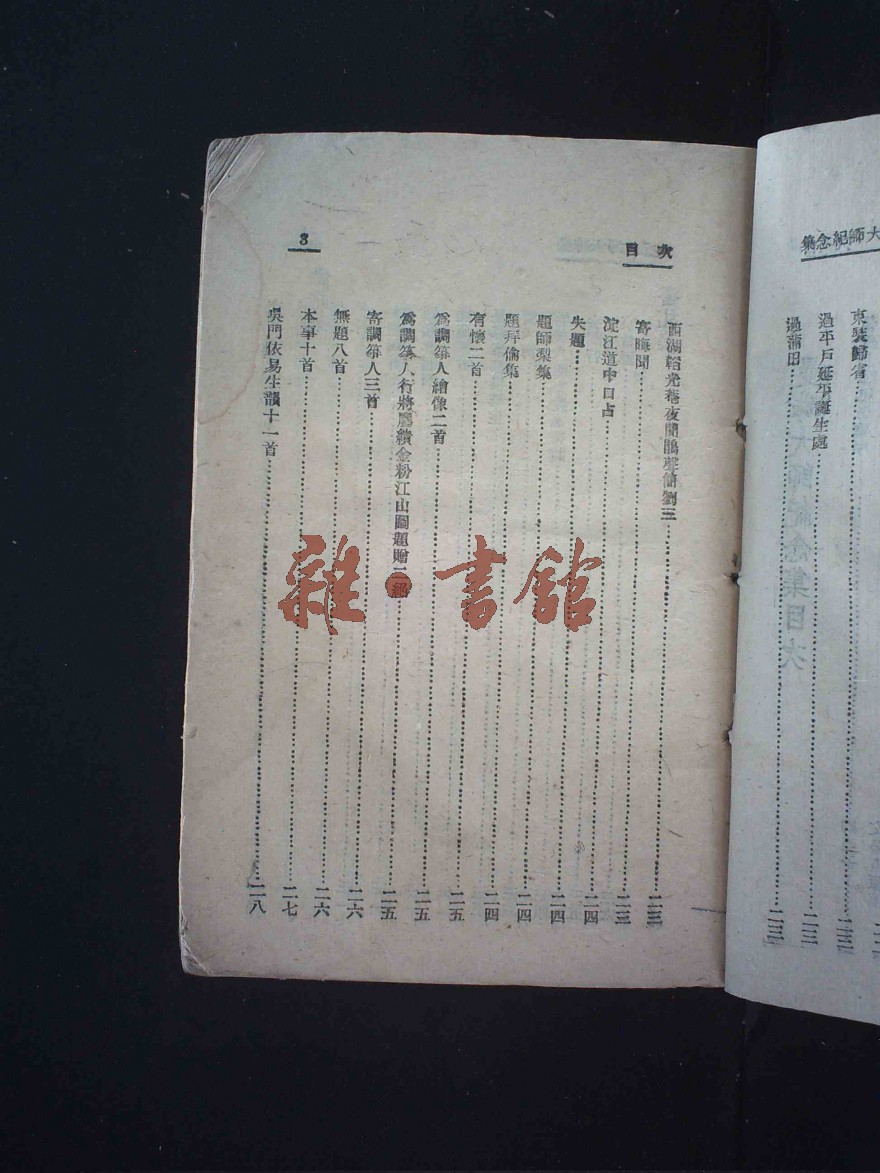 大師紀念集
束裝歸省
過平戶延平誕生處……二三
過蒲田……二三
目次
3
西湖韜光菴夜聞鵑聲簡劉三……二三
寄晦聞……二三
淀江道中口占……二四
失題……二四
題師梨集……二四
題拜倫集……二四
有懷二首……二五
爲調箏人繪像二首……二五
爲調箏人行將屬繢金粉江山圖題贈二絕……二五
寄調箏人三首……二六
無題八首……二六
本事十首……二七
吳門依易生韻十一首……二八
雜·書館